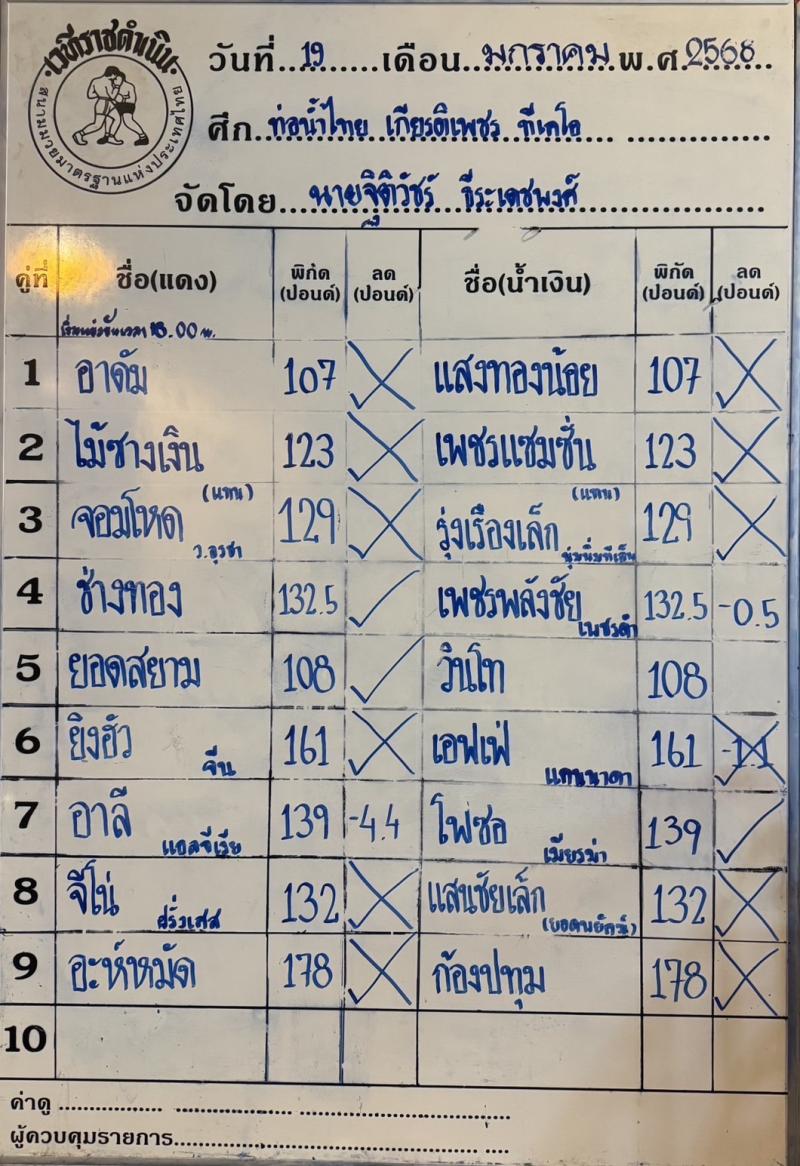 เวทีราชดำเนิน
สนามมวยมาตรฐานแห่งประเทศไทย
วันที่ 19 เดือน มกราคม พ.ศ. 2568
ศึก ท่อน้ำไทย เกียรติเพชร ทีเคโอ
จัดโดย นายฐิติวัชร์ ธีระเดชพงศ์
คู่ที่ ชื่อ(แดง) พิกัด (ปอนด์) ลด (ปอนด์) ชื่อ(น้ำเงิน) พิกัด (ปอนด์) ลด (ปอนด์)
1 อาดัม 107 แสงทองน้อย 107
2 ไม้ซางเงิน 123 เพชรแชมชั่น 123
3 จอมโหด (แทน) 129 รุ่งเรืองเล็ก (แทน) 129
4 ช้างทอง 132.5 ✓ เพชรพลังชัย เพชรดำ 132.5 -0.5
5 ยอดสยาม 108 ✓ วินโท 108
6 ยิงฮัว จีน 161 เอฟเฟ่ แคนนาดา 161 -1.1
7 อาลี แอลจีเรีย 139 -4.4 โฟซอ เมียรม่า 139 ✓
8 จีโน่ ฝรั่งเศส 132 แสนชัยเล็ก 132
9 อะห์หมัด 178 ก้องปทุม 178
10
ค่าดู
ผู้ควบคุมรายการ